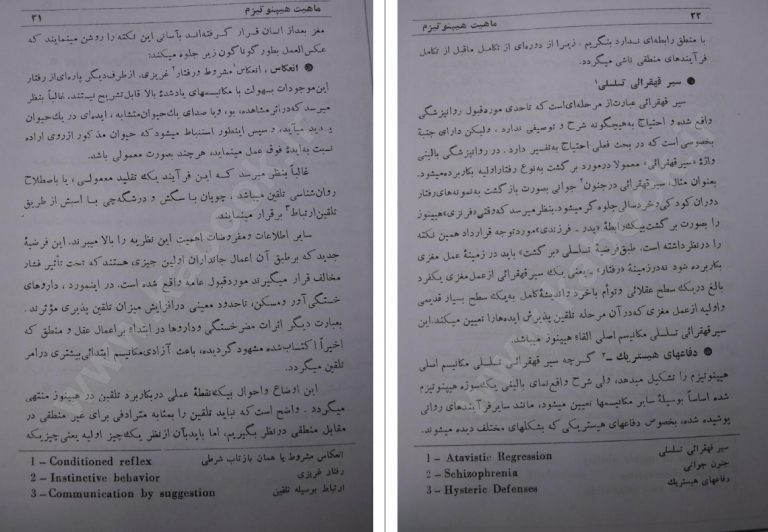 ماهیت هیپنوتیزم ۲۱
مغز بعد از انسان قرار گرفته‌اند بآسانی این نکته را روشن مینمایند که
عکس‌العمل بطور گوناگون زیر جلوه میکند:
● انعکاس، انعکاس ۱ مشروط و رفتار ۲ غریزی. از طرف دیگر پاره‌ای از رفتار
این موجودات بسهولت با مکانیسمهای یاد شدهٔ بالا قابل تشریح نیستند. غالباً بنظر
میرسد که در اثر مشاهده، بو، و یا صدای یك حیوان مشابه، ایده‌ای در یك حیوان
پدید میآید، و سپس اینطور استنباط میشود که حیوان مذکور از روی اراده
نسبت به آیدهٔ فوق عمل مینماید، هر چند بصورت معمولی باشد.
غالباً بنظر میرسد که این فرآیند یك تقلید معمولی، یا باصطلاح
روان‌شناسی تلقین میباشد، چوپان با سگش و درشگه‌چی با اسبش از طریق
تلقین ارتباط ۳ برقرار مینمایند.
سایر اطلاعات و مفروضات اهمیت این نظریه را بالا میبرند. این فرضیهٔ
جدید که بر طبق آن اعمال جانداران اولین چیزی هستند که تحت تأثیر فشار
مخالف قرار میگیرند مورد قبول عامه واقع شده است. در اینمورد، داروهای
خستگی‌آور و مسکن، تا حدود معینی در افزایش میزان تلقین پذیری مؤثرند.
بعبارت دیگر اثرات مضر خستگی و داروها در ابتداء بر اعمال عقل و منطق که
اخیراً اکتساب شده مشهود گردیده، باعث آزادی مکانیسم ابتدائی بیشتری در امر
تلقین میگردد.
این اوضاع و احوال بیك نقطهٔ عملی در بکار برد تلقین در هیپنوز منتهی
میگردد. واضح است که نباید تلقین را بمثابه مترادفی برای غیر منطقی در
مقابل منطقی در نظر بگیریم، اما باید بآن از نظر یك چیز اولیه یعنی چیزیکه
1 – Conditioned reflex انعکاس مشروط یا همان بازتاب شرطی
2 – Instinctive behavior رفتار غریزی
3 – Communication by suggestion ارتباط بوسیله تلقین
۲۲ ماهیت هیپنوتیزم
با منطق رابطه‌ای ندارد بنگریم، زیرا از دوره‌ای از تکامل ماقبل از تکامل
فرآیندهای منطقی ناشی میگردد.
● سیر قهقرائی تسلسلی ۱
سیر قهقرائی عبارت از مرحله‌ای است که تا حدی مورد قبول روانپزشگی
واقع شده و احتیاج به هیچگونه شرح و توصیفی ندارد، ولیکن دارای جنبهٔ
بخصوصی است که در بحث فعلی احتیاج به تفسیر دارد. در روانپزشگی بالینی
واژهٔ «سیر قهقرائی» معمولا در مورد برگشت به نوع رفتار اولیه بکار برده میشود.
بعنوان مثال، سیر قهقرائی در جنون ۲ جوانی بصورت بازگشت به نمونه‌های رفتار
دوران کودکی و خردسالی جلوه گر میشود. بنظر میرسد که وقتی «فرنزی» هیپنوز
را بصورت برگشت بیك رابطهٔ «پدر ـ فرزندی» مورد توجه قرار داد همین نکته
را در نظر داشته است، طبق فرضیهٔ تسلسلی «برگشت» باید در زمینهٔ عمل مغزی
بکار برده شود نه در زمینهٔ «رفتار» یعنی یك سیر قهقرائی از عمل مغزی یکفرد
بالغ در یك سطح عقلائی و توأم با خرد و اندیشهٔ کامل به یك سطح بسیار قدیمی
و اولیه از عمل مغزی که در آن مرحله تلقین پذیرش ایده‌ها را تعیین میکند. این
سیر قهقرائی تسلسلی مکانیسم اصلی القاء هیپنوز میباشد.
● دفاعهای هیستریك ـ ۳ گرچه سیر قهقرائی تسلسلی مکانیسم اصلی
هیپنوتیزم را تشکیل میدهد، ولی شرح واقع‌نمای بالینی یك سوژه هیپنوتیزم
شده اساساً بوسیلهٔ سایر مکانیسمها تعیین میشود، مانند سایر فرآیندهای روانی
پوشیده شده، بخصوص دفاعهای هیستریکی که بشکلهای مختلف دیده میشوند.
1 – Atavistic Regression سیر قهقرائی تسلسلی
2 – Schizophrenia جنون جوانی
3 – Hysteric Defenses دفاعهای هیستریك